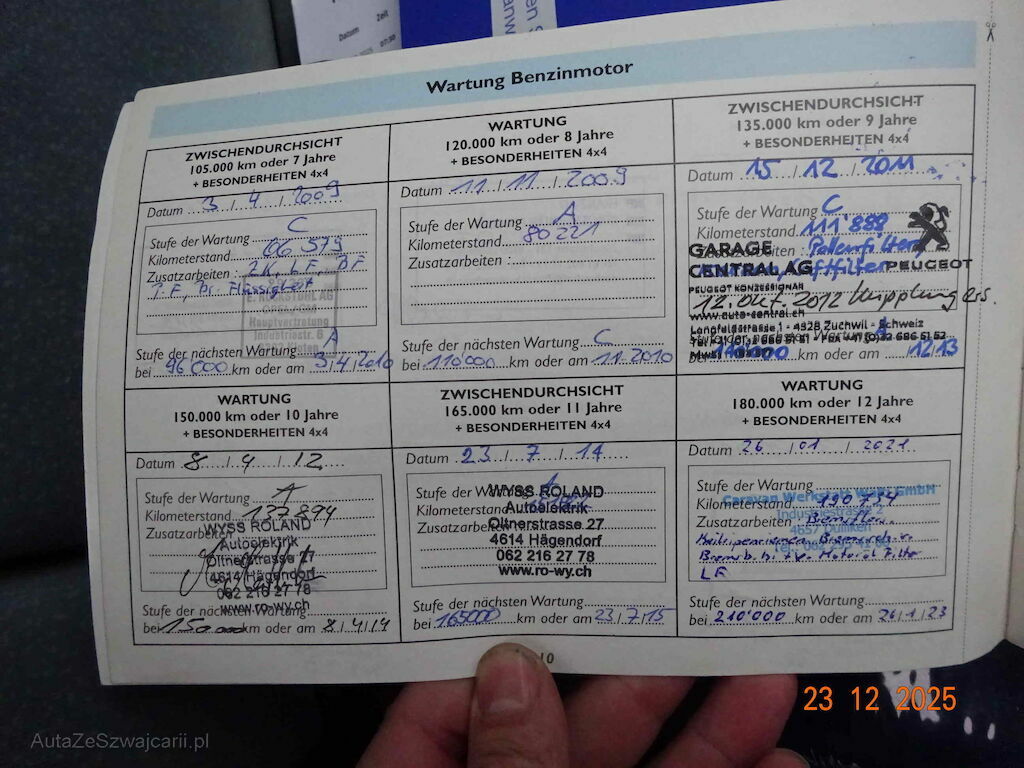 Datum Zeit
Wartung Benzinmotor
ZWISCHENDURCHSICHT
105.000 km oder 7 Jahre
+ BESONDERHEITEN 4x4
Datum 3 / 4 / 2009
Stufe der Wartung C
Kilometerstand
Zusatzarbeiten :
Br. Flüssigkeit
E. ROKSTUHL AG
Hauptvertretung
Industriestr.
Stufe der nächsten Wartung A
bei 96000 km oder am 3/4/2010
WARTUNG
120.000 km oder 8 Jahre
+ BESONDERHEITEN 4x4
Datum 11 / 11 / 2009
Stufe der Wartung A
Kilometerstand 80221
Zusatzarbeiten :
Stufe der nächsten Wartung C
bei 110'000 km oder am 11.2010
ZWISCHENDURCHSICHT
135.000 km oder 9 Jahre
+ BESONDERHEITEN 4x4
Datum 15 / 12 / 2011
Stufe der Wartung C
Kilometerstand 111'888
Zusatzarbeiten : Pollenfilter
Luftfilter
GARAGE
CENTRAL AG
PEUGEOT
PEUGEOT KONZESSIONÄR
12. Okt. 2012 Kupplung
www.auto-central.ch
Langfeldstrasse 1 - 4528 Zuchwil - Schweiz
Stufe der nächsten Wartung A
bei km oder am /12/13
WARTUNG
150.000 km oder 10 Jahre
+ BESONDERHEITEN 4x4
Datum 8 / 4 / 12
Stufe der Wartung A
Kilometerstand 137894
Zusatzarbeiten
WYSS ROLAND
Autoelektrik
Oltnerstrasse 27
4614 Hägendorf
062 216 27 78
www.ro-wy.ch
Stufe der nächsten Wartung
bei 150000 km oder am 8/4/14
ZWISCHENDURCHSICHT
165.000 km oder 11 Jahre
+ BESONDERHEITEN 4x4
Datum 23 / 7 / 14
Stufe der Wartung
Kilometerstand
Zusatzarbeiten
WYSS ROLAND
Autoelektrik
Oltnerstrasse 27
4614 Hägendorf
062 216 27 78
www.ro-wy.ch
Stufe der nächsten Wartung
bei 165000 km oder am 23/7/15
WARTUNG
180.000 km oder 12 Jahre
+ BESONDERHEITEN 4x4
Datum 26 / 01 / 2021
Stufe der Wartung
Caravan GmbH
Kilometerstand 190734
Industriestrasse 2
Zusatzarbeiten
LF
Stufe der nächsten Wartung
bei 210'000 km oder am 26/1/23
10
23 12 2025
AutaZeSzwajcarii.pl